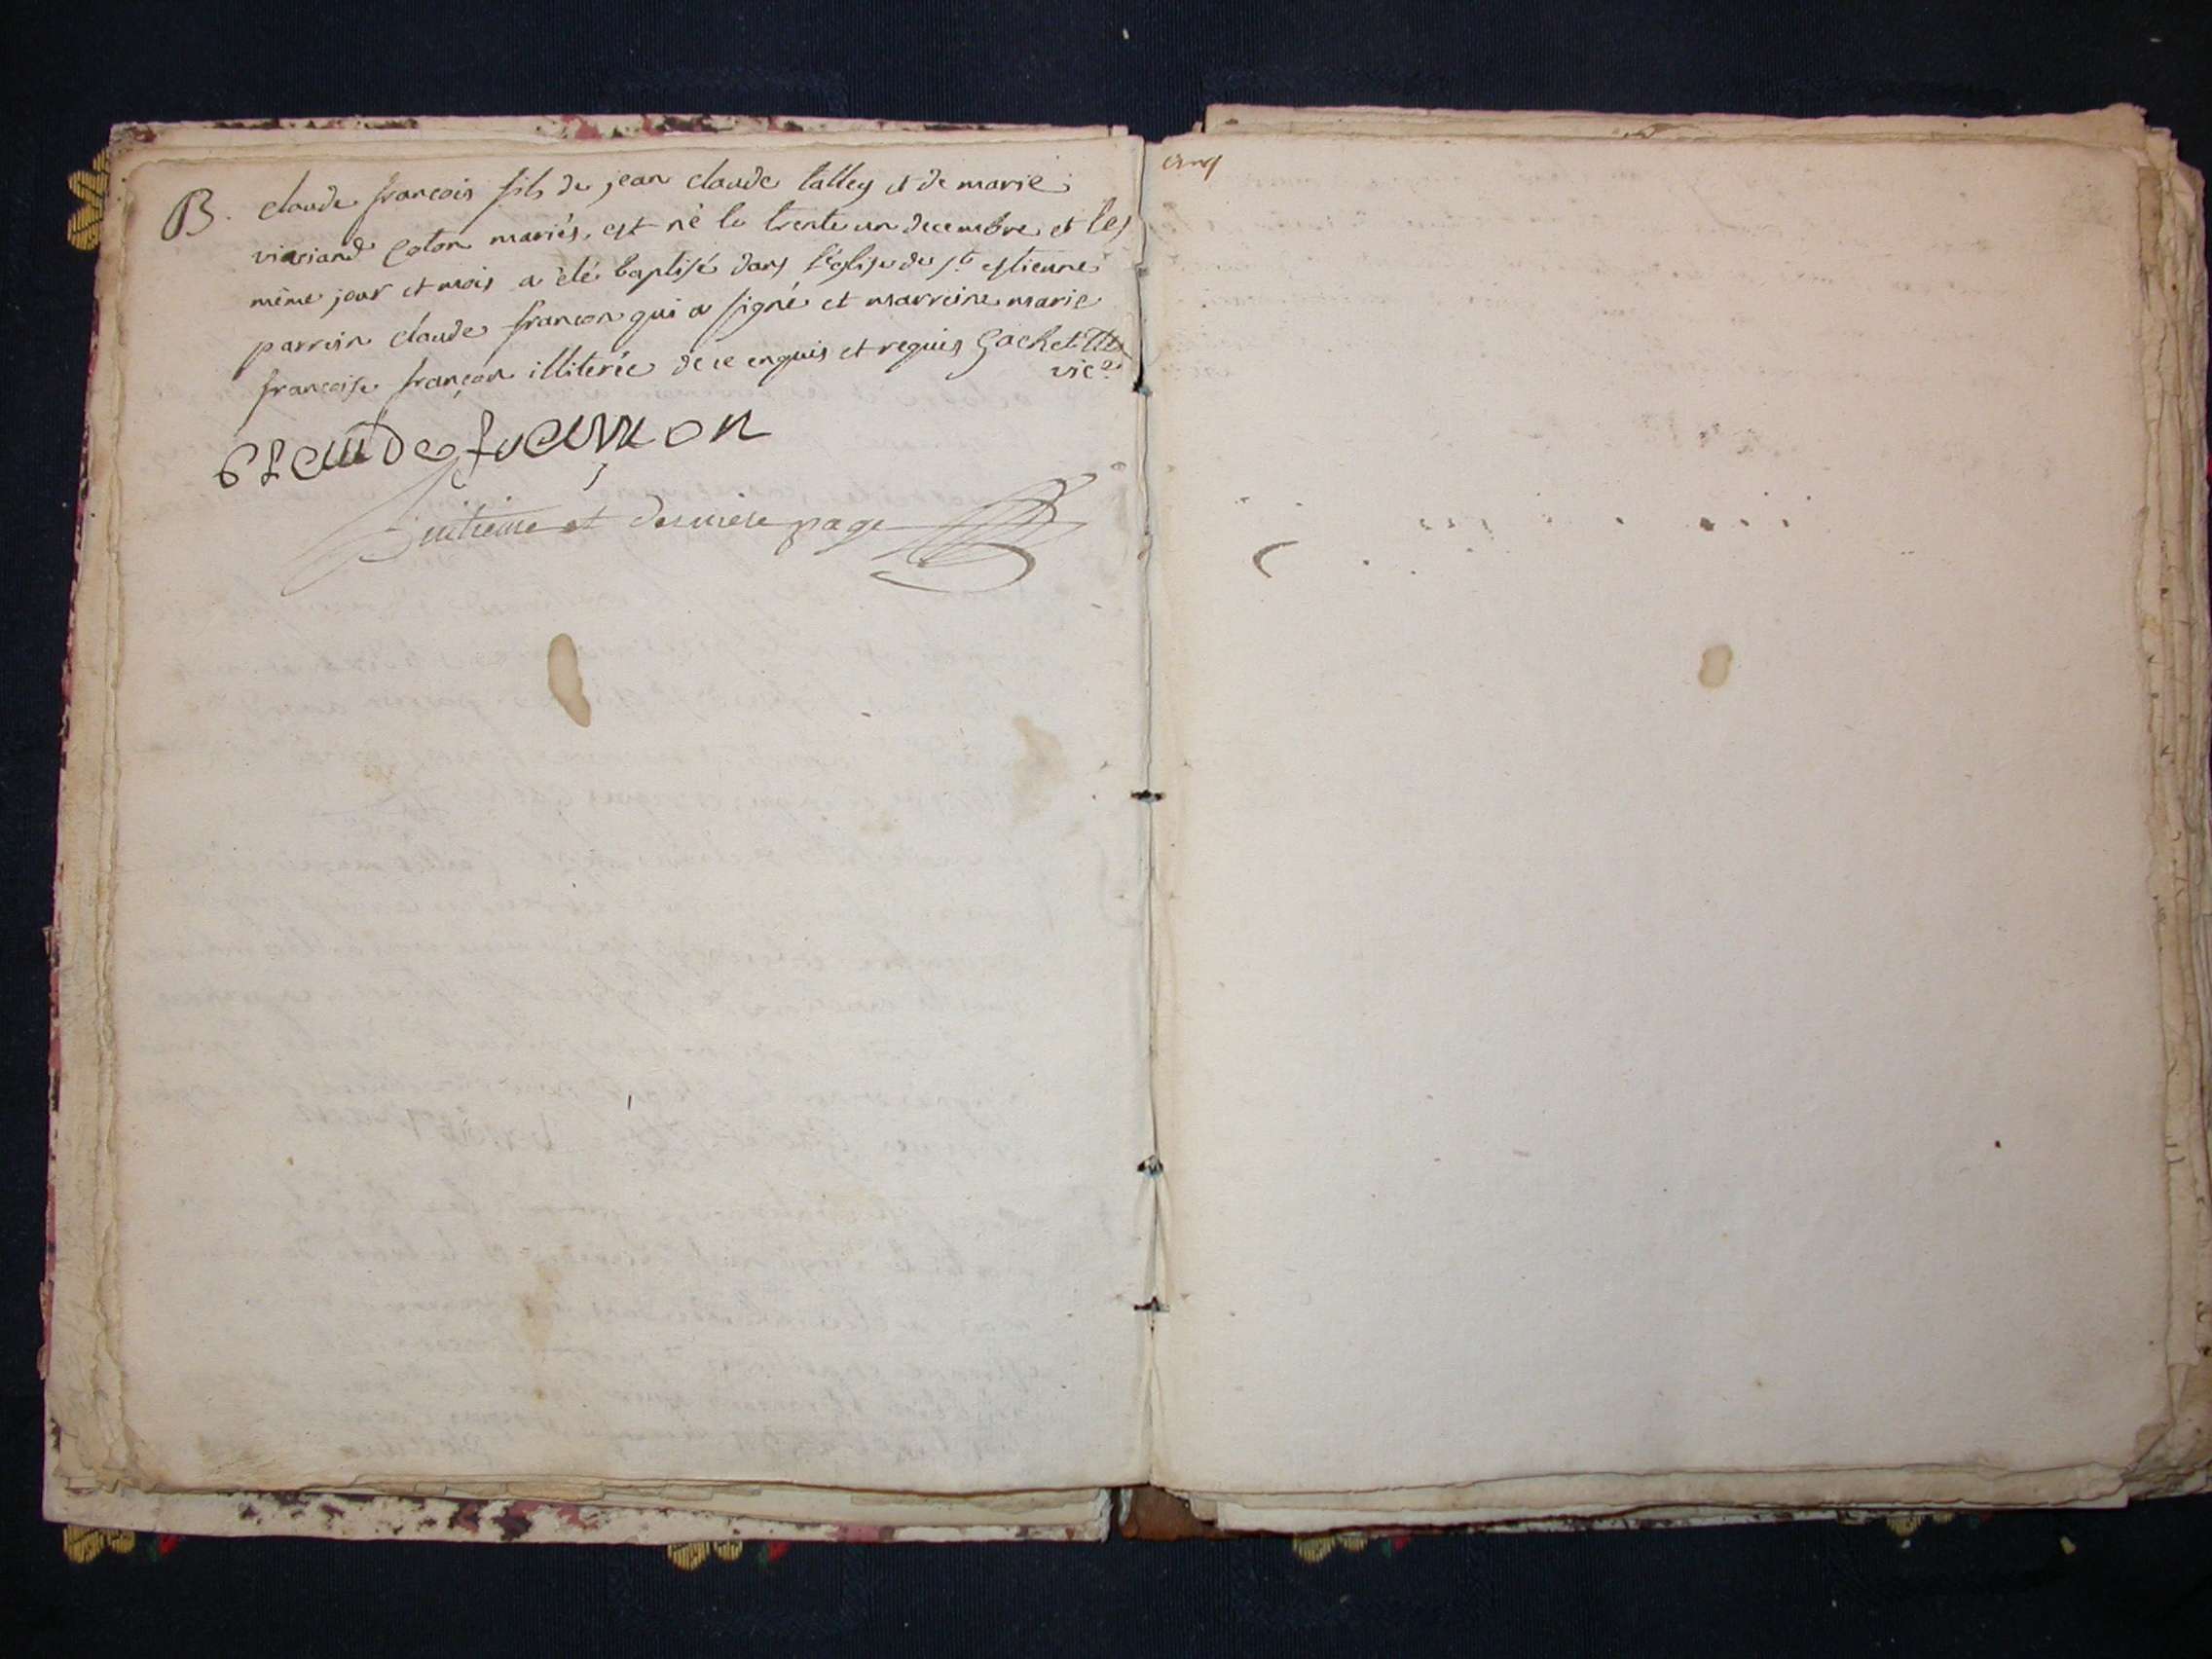 B. claude francois fils de jean claude talley et de marie
viviand coton mariés, est né le trente un decembre et les
même jour et mois a été baptisé dans l'eglise de st estienne
parrain claude françon qui a signé et marreine marie
francoise françon illiterée de ce enquis et requis Gachet
vic.e
Claude françon
huitieme et derniere page
cinq